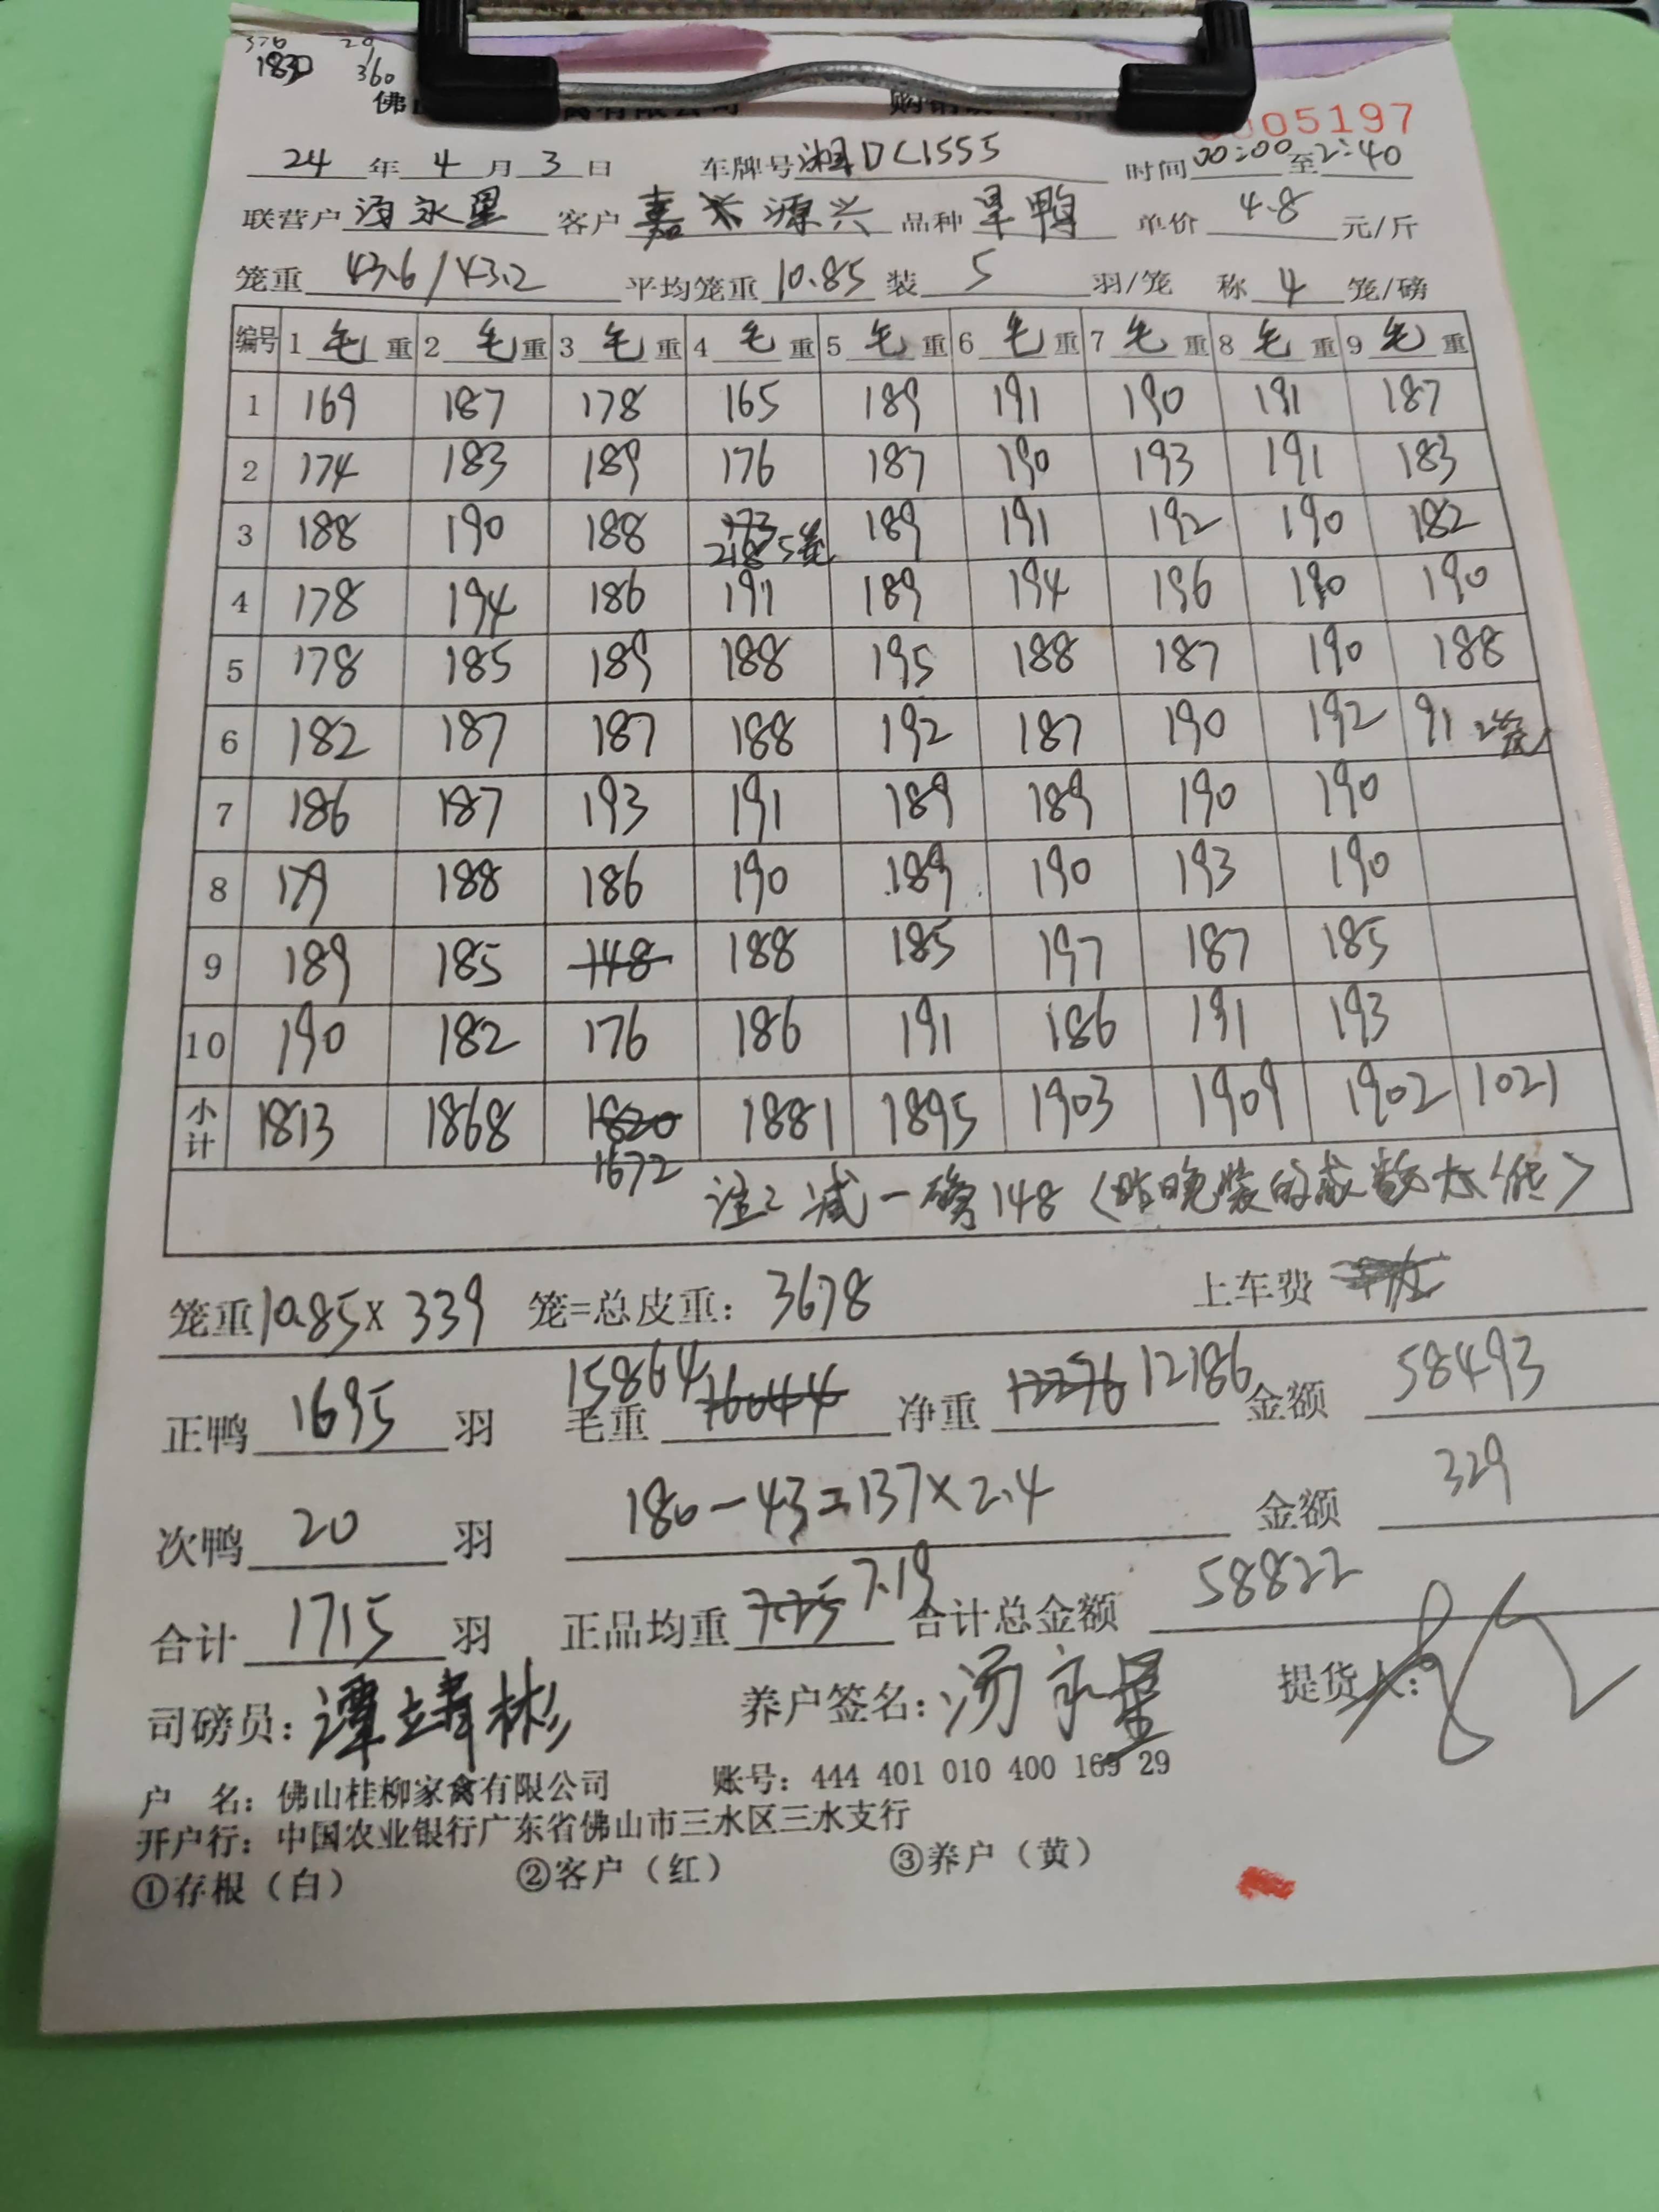 376 20
1830 360
佛山 禽有限公司 购销
0005197
24 年 4 月 3 日 车牌号 湘DC1555 时间 00:00 至 2:40
联营户 汤永星 客户 嘉禾源兴 品种 旱鸭 单价 4.8 元/斤
笼重 43.6/43.2 平均笼重 10.85 装 5 羽/笼 称 4 笼/磅
编号 1 毛 重 2 毛 重 3 毛 重 4 毛 重 5 毛 重 6 毛 重 7 毛 重 8 毛 重 9 毛 重
1 169 187 178 165 189 191 190 191 187
2 174 183 189 176 187 190 193 191 183
3 188 190 188 173 218 5笼 189 191 192 190 182
4 178 194 186 191 189 194 196 190 190
5 178 185 189 188 195 188 187 190 188
6 182 187 187 188 192 187 190 192 91 2笼
7 186 187 193 191 189 189 190 190
8 179 188 186 190 189 190 193 190
9 189 185 148 188 185 197 187 185
10 190 182 176 186 191 186 191 193
小计 1813 1868 1820 1881 1895 1903 1909 1902 1021
1672
注: 减一磅148（昨晚装的成数太低）
笼重 10.85 X 339 笼=总皮重: 3678 上车费
正鸭 1695 羽 毛重 16044 15864 净重 12276 12186 金额 58493
次鸭 20 羽 180-43=137×2.4 金额 329
合计 1715 羽 正品均重 7.25 7.19 合计总金额 58822
司磅员: 谭靖彬 养户签名: 汤永星 提货人:
户 名: 佛山桂柳家禽有限公司 账号: 444 401 010 400 169 29
开户行: 中国农业银行广东省佛山市三水区三水支行
①存根（白） ②客户（红） ③养户（黄）